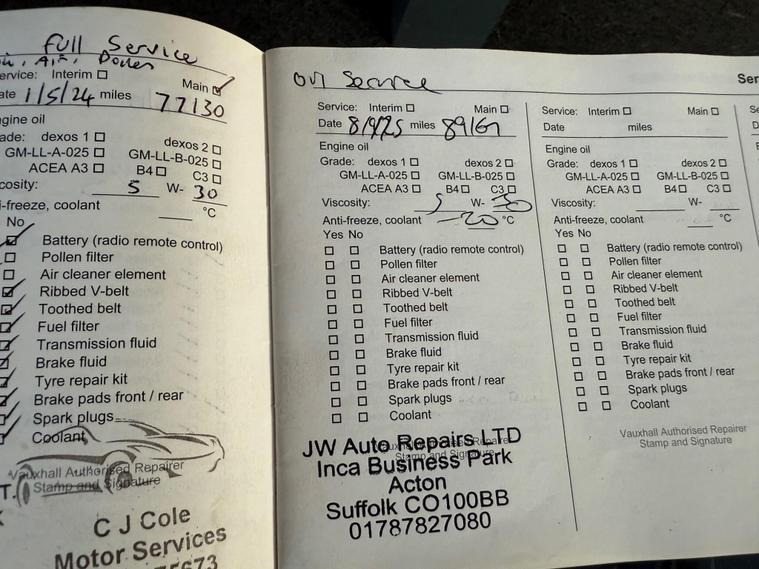 Full Service
Air,
Service: Interim ☐
Main ☑
Date 1/5/24 miles 77130
Engine oil
Grade: dexos 1 ☐ dexos 2 ☐
GM-LL-A-025 ☐ GM-LL-B-025 ☐
ACEA A3 ☐ B4 ☐ C3 ☐
Viscosity: 5 W- 30
Anti-freeze, coolant °C
No
Battery (radio remote control)
Pollen filter
Air cleaner element
Ribbed V-belt
Toothed belt
Fuel filter
Transmission fluid
Brake fluid
Tyre repair kit
Brake pads front / rear
Spark plugs
Coolant
Vauxhall Authorised Repairer
Stamp and Signature
C J Cole
Motor Services
75673
Oil Service
Service: Interim ☐ Main ☐
Date 8/9/25 miles 89167
Engine oil
Grade: dexos 1 ☐ dexos 2 ☐
GM-LL-A-025 ☐ GM-LL-B-025 ☐
ACEA A3 ☐ B4 ☐ C3 ☐
Viscosity: 5 W- 30
Anti-freeze, coolant -20 °C
Yes No
☐ ☐ Battery (radio remote control)
☐ ☐ Pollen filter
☐ ☐ Air cleaner element
☐ ☐ Ribbed V-belt
☐ ☐ Toothed belt
☐ ☐ Fuel filter
☐ ☐ Transmission fluid
☐ ☐ Brake fluid
☐ ☐ Tyre repair kit
☐ ☐ Brake pads front / rear
☐ ☐ Spark plugs
☐ ☐ Coolant
JW Auto Repairs LTD
Inca Business Park
Acton
Suffolk CO100BB
01787827080
Ser
Service: Interim ☐ Main ☐
Date miles
Engine oil
Grade: dexos 1 ☐ dexos 2 ☐
GM-LL-A-025 ☐ GM-LL-B-025 ☐
ACEA A3 ☐ B4 ☐ C3 ☐
Viscosity: W-
Anti-freeze, coolant °C
Yes No
☐ ☐ Battery (radio remote control)
☐ ☐ Pollen filter
☐ ☐ Air cleaner element
☐ ☐ Ribbed V-belt
☐ ☐ Toothed belt
☐ ☐ Fuel filter
☐ ☐ Transmission fluid
☐ ☐ Brake fluid
☐ ☐ Tyre repair kit
☐ ☐ Brake pads front / rear
☐ ☐ Spark plugs
☐ ☐ Coolant
Vauxhall Authorised Repairer
Stamp and Signature